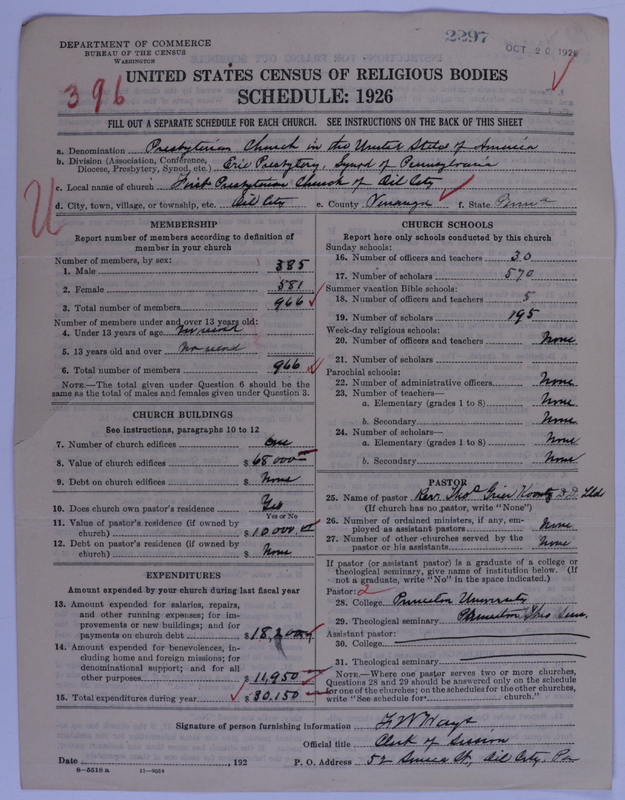 2297
OCT 20 1926
DEPARTMENT OF COMMERCE
BUREAU OF THE CENSUS
WASHINGTON
396
UNITED STATES CENSUS OF RELIGIOUS BODIES
SCHEDULE: 1926
FILL OUT A SEPARATE SCHEDULE FOR EACH CHURCH. SEE INSTRUCTIONS ON THE BACK OF THIS SHEET
a. Denomination Presbyterian Church in the United States of America
b. Division (Association, Conference, Diocese, Presbytery, Synod, etc.) Erie Presbytery, Synod of Pennsylvania
c. Local name of church First Presbyterian Church of Oil City
d. City, town, village, or township, etc. Oil City e. County Venango f. State Penna
U
MEMBERSHIP
Report number of members according to definition of
member in your church
Number of members, by sex:
1. Male 385
2. Female 581
3. Total number of members 966
Number of members under and over 13 years old:
4. Under 13 years of age No record
5. 13 years old and over No record
6. Total number of members 966
NOTE.—The total given under Question 6 should be the
same as the total of males and females given under Question 3.
CHURCH BUILDINGS
See instructions, paragraphs 10 to 12
7. Number of church edifices One
8. Value of church edifices $ 65 000
9. Debt on church edifices $ None
10. Does church own pastor's residence Yes
Yes or No
11. Value of pastor's residence (if owned by
church) $ 10,000
12. Debt on pastor's residence (if owned by
church) $ None
EXPENDITURES
Amount expended by your church during last fiscal year
13. Amount expended for salaries, repairs,
and other running expenses; for im-
provements or new buildings; and for
payments on church debt $ 18,200
14. Amount expended for benevolences, in-
cluding home and foreign missions; for
denominational support; and for all
other purposes $ 11,950
15. Total expenditures during year $ 30,150
CHURCH SCHOOLS
Report here only schools conducted by this church
Sunday schools:
16. Number of officers and teachers 30
17. Number of scholars 570
Summer vacation Bible schools:
18. Number of officers and teachers 5
19. Number of scholars 195
Week-day religious schools:
20. Number of officers and teachers None
21. Number of scholars
Parochial schools:
22. Number of administrative officers None
23. Number of teachers—
a. Elementary (grades 1 to 8) None
b. Secondary None
24. Number of scholars—
a. Elementary (grades 1 to 8) None
b. Secondary None
PASTOR
25. Name of pastor Rev. Thos Grier Koontz D.D. 
(If church has no pastor, write "None")
26. Number of ordained ministers, if any, em-
ployed as assistant pastors None
27. Number of other churches served by the
pastor or his assistants None
If pastor (or assistant pastor) is a graduate of a college or
theological seminary, give name of institution below. (If
not a graduate, write "No" in the space indicated.)
Pastor: 2
28. College Princeton University
29. Theological seminary Princeton Theo Sem.
Assistant pastor:
30. College
31. Theological seminary
NOTE.—Where one pastor serves two or more churches,
Questions 28 and 29 should be answered only on the schedule
for one of the churches; on the schedules for the other churches,
write "See schedule for church."
Signature of person furnishing information
Official title Clerk of Session
Date , 192 P. O. Address 52 Seneca St, Oil City, Pa
8—5518a 11—9554